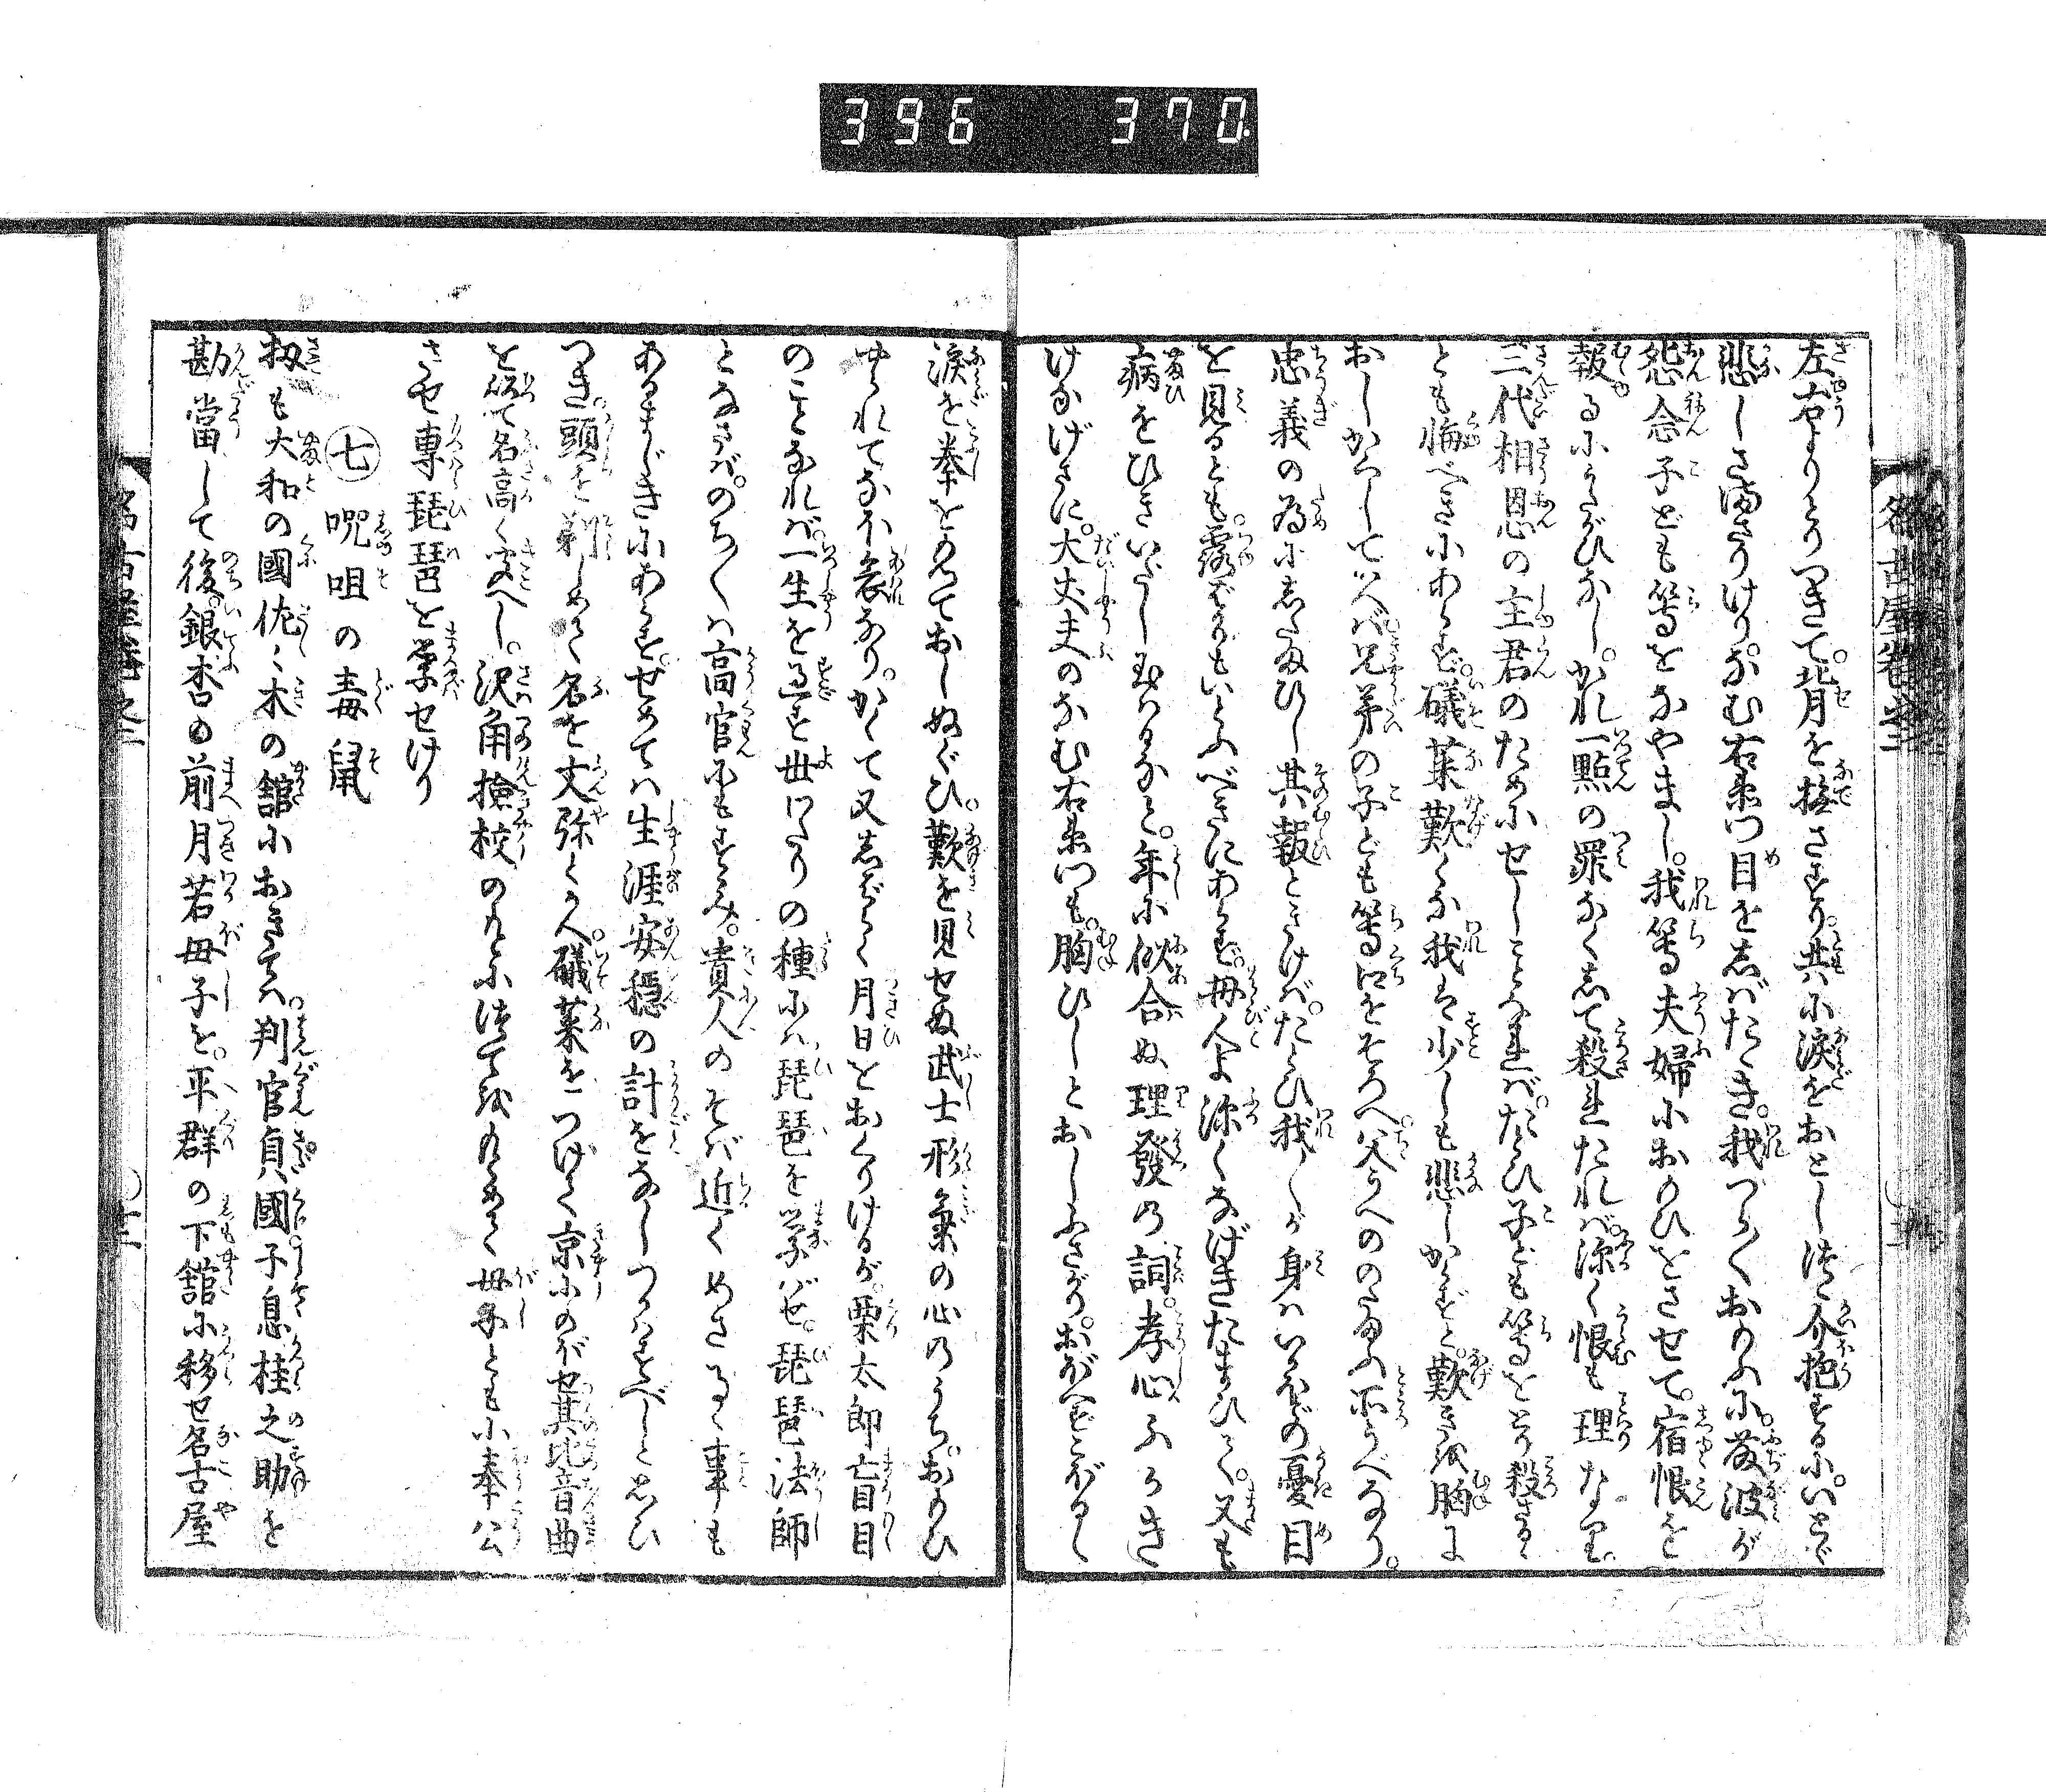 396 370
左右よりとりつきて。背を撫さすり。共に涙をおとしつゝ介抱するに。いとゞ
悲しさまさりけり。なむ右衛門目をしばたゝき。我つら〳〵おもふに。藤波が
怨念子ども等をなやまし。我等夫婦におもひをさせて。宿恨を
報るにうたがひなし。かれ一點の罪なくして殺れたれば。深く恨も理なり。
三代相恩の主君のためにせしことなれば。たとひ子ども等をとり殺さるゝ
とも悔べきにあらず。礒菜歎くな我は少しも悲しからずと。歎きを胸に
おしかくしていへば兄弟の子ども等口をそろへ。父うへののたまふ所うべなり。
忠義の為にしたまひし其報ときけば。たとひ我〳〵が身はいかほどの憂目
を見るとも。露ばかりもいとふべきにあらず。母人よ深くなげきたまひそ。又も
病をひきいだし玉はるなと。年に似合ぬ理發の詞。孝心ふかき
けなげさに。大丈夫のなむ右衛門も。胸ひしとおしふさがり。おぼへずこぼるゝ
涙を拳をもておしぬぐひ。歎を見せぬ武士形氣の心のうち。おもひ
やられてなほ哀なり。かくて又しばらく月日をおくりけるが。栗太郎盲目
のことなれば。一生を過す世わたりの種には琵琶を学ばせ。琵琶法師
となさば。のち〳〵は高官にもすゝみ。貴人のそば近くめさるゝ事も
あるまじきにあらず。せめては生涯安穏の計をなしつかはすべしと思ひ
つき。頭を剃しめて名を文弥とよび。礒菜をつけて京にのぼせ其比音曲
を以て名高く聞へし。沢角撿校のもとにつてをもとめて母子ともに奉公
させ専琵琶を学せけり
㊆ 呪咀の毒鼠
扨も大和の國佐々木の舘におきては。判官貞國子息桂之助を
勘當して後。銀杏の前月若母子を。平群の下舘に移せ名古屋